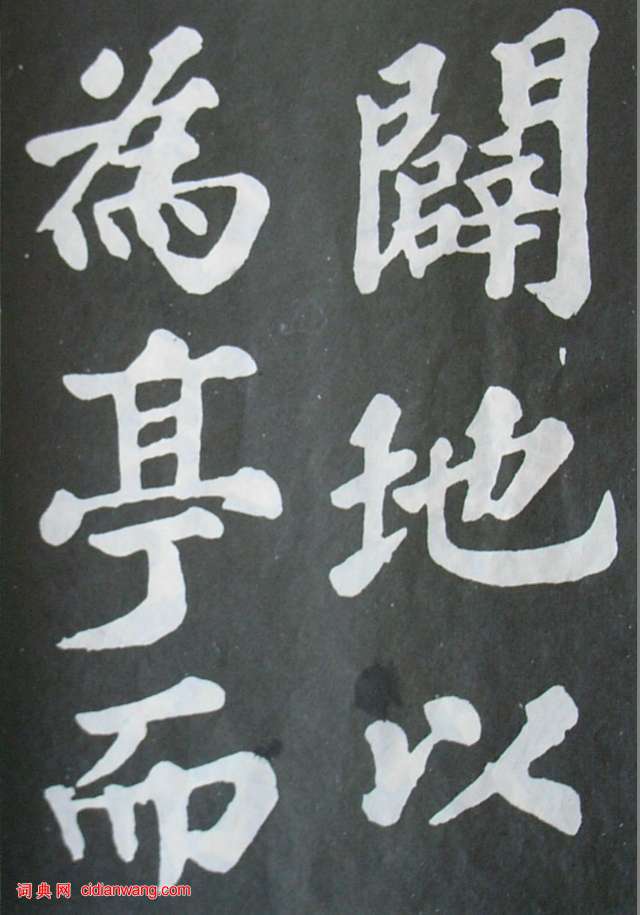 闢地以
為亭而
词典网 cidianwang.com